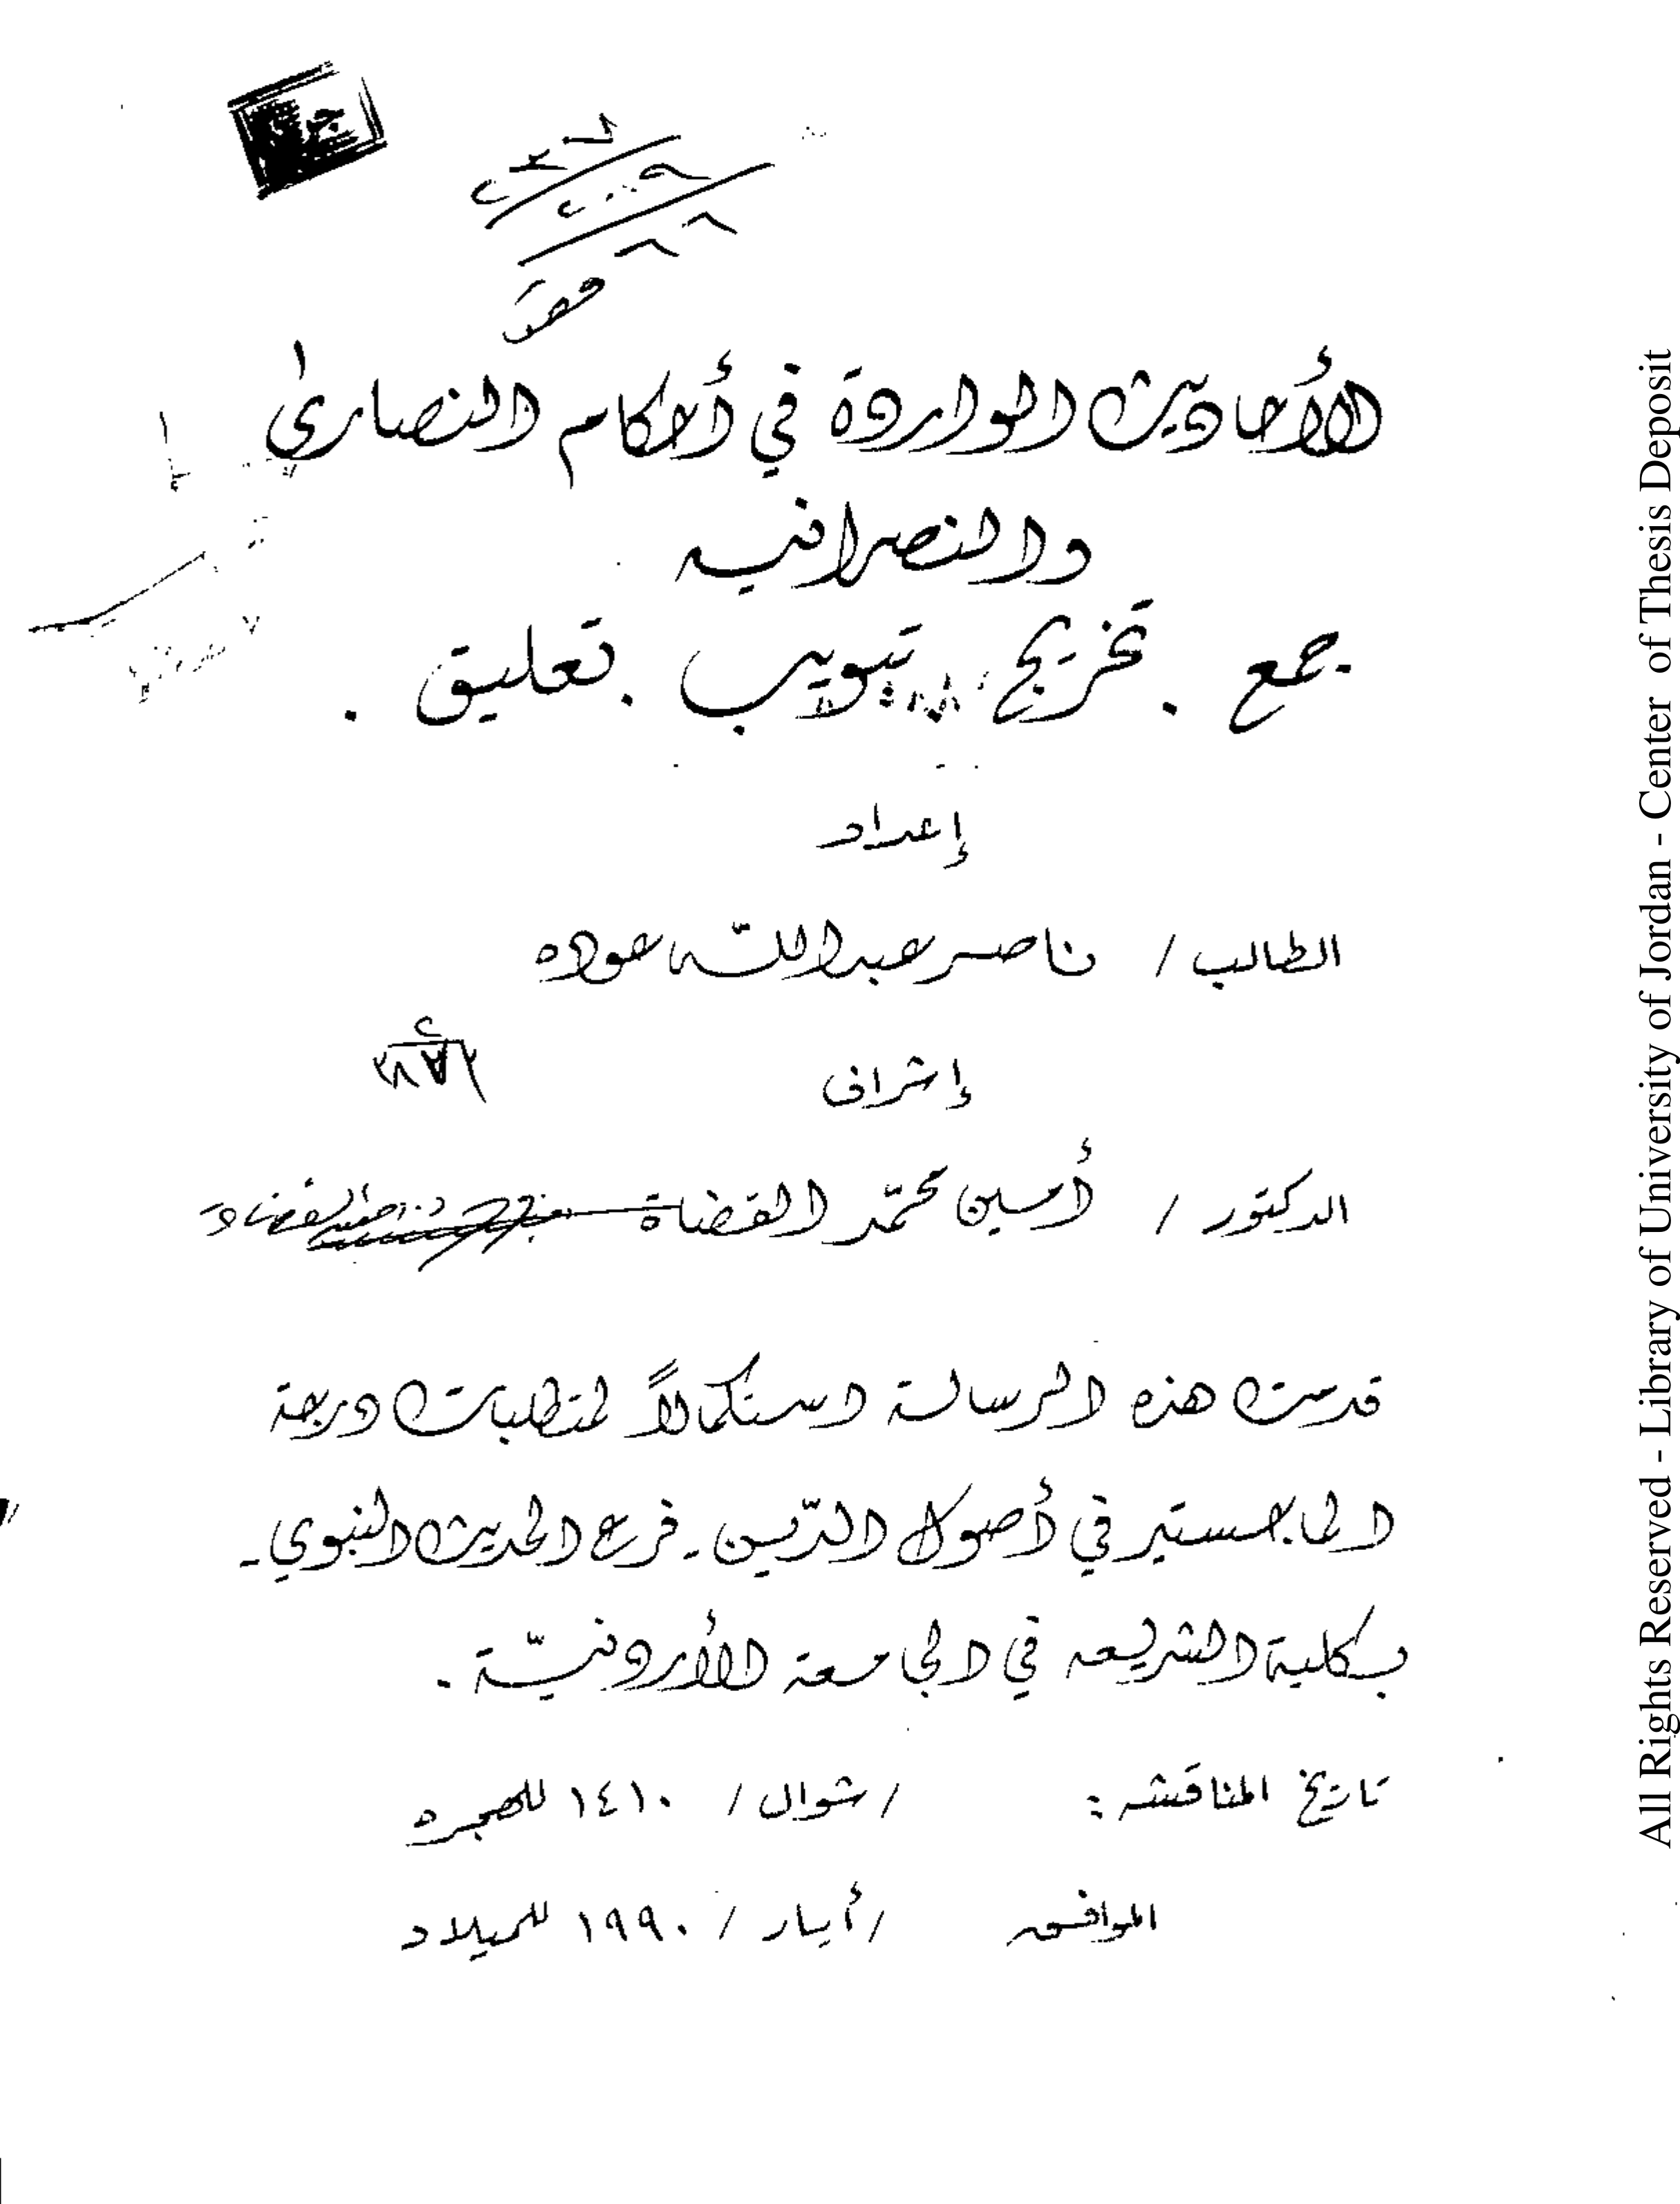 الأحاديث الواردة في أحكام النصارى
والنصرانيه
جمع . تخريج . تبويب . تعليق .
إعداد
الطالب / ناصر عبدالله عوده
إشراف
الدكتور / أمين محمّد القضاة
قدمت هذه الرسالة استكمالاً لمتطلبات درجة
الماجستير في أصول الدّين - فرع الحديث النبوي -
بكلية الشريعه في الجامعة الأردنيّة .
تاريخ المناقشه : / شوال / ١٤١٠ للهجره
الموافق / أيار / ١٩٩٠ للميلاد
All Rights Reserved - Library of University of Jordan - Center of Thesis Deposit